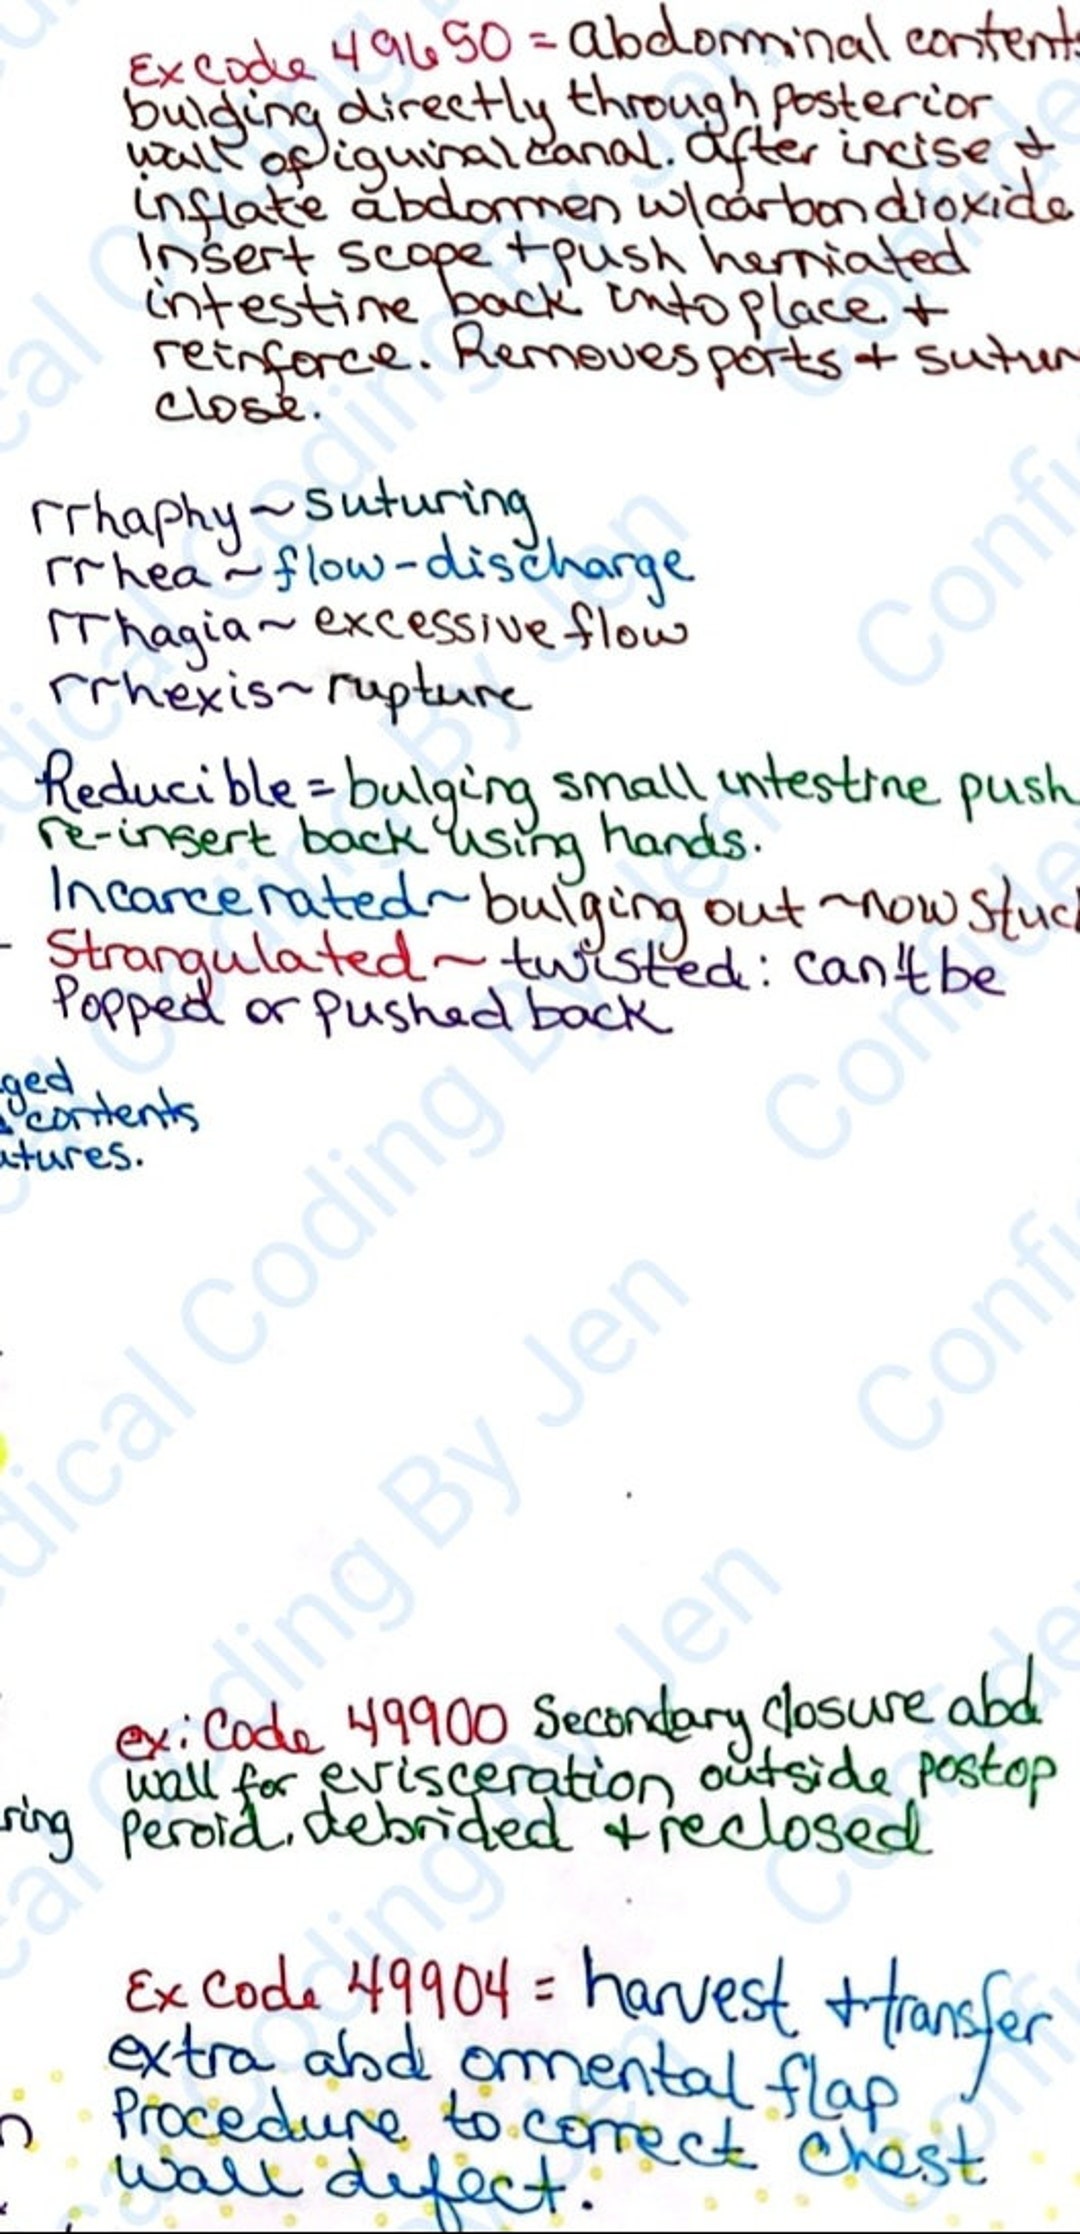 Ex Code 49650 = abdominal contents
bulding directly through posterior
wall of iguinal canal. After incise +
inflate abdomen w/carbon dioxide
Insert scope + push herniated
intestine back into place +
reinforce. Removes ports + sutur
close.
rrhaphy ~ suturing
rrhea ~ flow-discharge
rrhagia ~ excessive flow
rrhexis ~ rupture
Reducible = bulging small intestine push
re-insert back using hands.
Incarcerated ~ bulging out ~ now stuck
- Strangulated ~ twisted: can't be
Popped or pushed back
ged
contents
utures.
ex: Code 49900 Secondary closure abd
wall for evisceration outside postop
ring peroid. debrided + reclosed
Ex Code 49904 = harvest + transfer
extra abd omental flap
n Procedure to correct chest
wall defect.
Medical Coding By Jen
Confidential